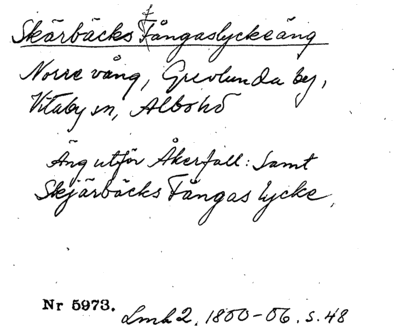 Skärbäcks Fångaslyckeäng
Norrevång, Grevlunda by,
Vitaby sn, Albo hd
Äng utför Åkerfall: samt
Skjärbäcks Fångas lycke,
Nr 5973. Lmh 2. 1800-06. s. 48